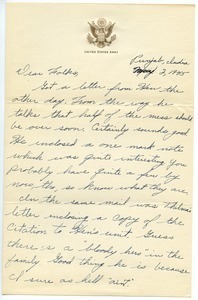 UNITED STATES ARMY
Punjab, India
May 3, 1945
Dear Folks,
Got a letter from the
other day. From the way he
talks that half of the mess should
be over soon. Certainly sounds good.
He enclosed a one mark note
which was quite interesting you
probably have quite a few by
now, tho, so know what they are.
In the same mail was
letter enclosing a Copy of the
Citation to unit. Guess
there is a 'bloody hero in the
family. Good thing he is because
I sure as hell 'ain't'